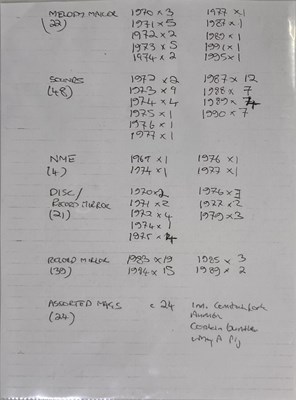 MELODY MAKER 1970 x 3 1977 x 1
(22) 1971 x 5 1987 x 1
1972 x 2 1989 x 1
1973 x 5 1991 x 1
1974 x 2 1995 x 1
SOUNDS 1972 x 2 1987 x 12
(48) 1973 x 9 1988 x 7
1974 x 4 1989 x 4
1975 x 1 1990 x 7
1976 x 1
1977 x 1
NME 1969 x 1 1976 x 1
(4) 1974 x 1 1977 x 1
DISC/ 1970 x 2 1976 x 3
RECORD MIRROR 1971 x 2 1977 x 2
(21) 1972 x 4 1979 x 3
1974 x 1
1975 x 4
RECORD MIRROR 1983 x 19 1985 x 3
(39) 1984 x 15 1989 x 2
ASSORTED MAGS x 24 Inc.
(24)
bundle
A Pig